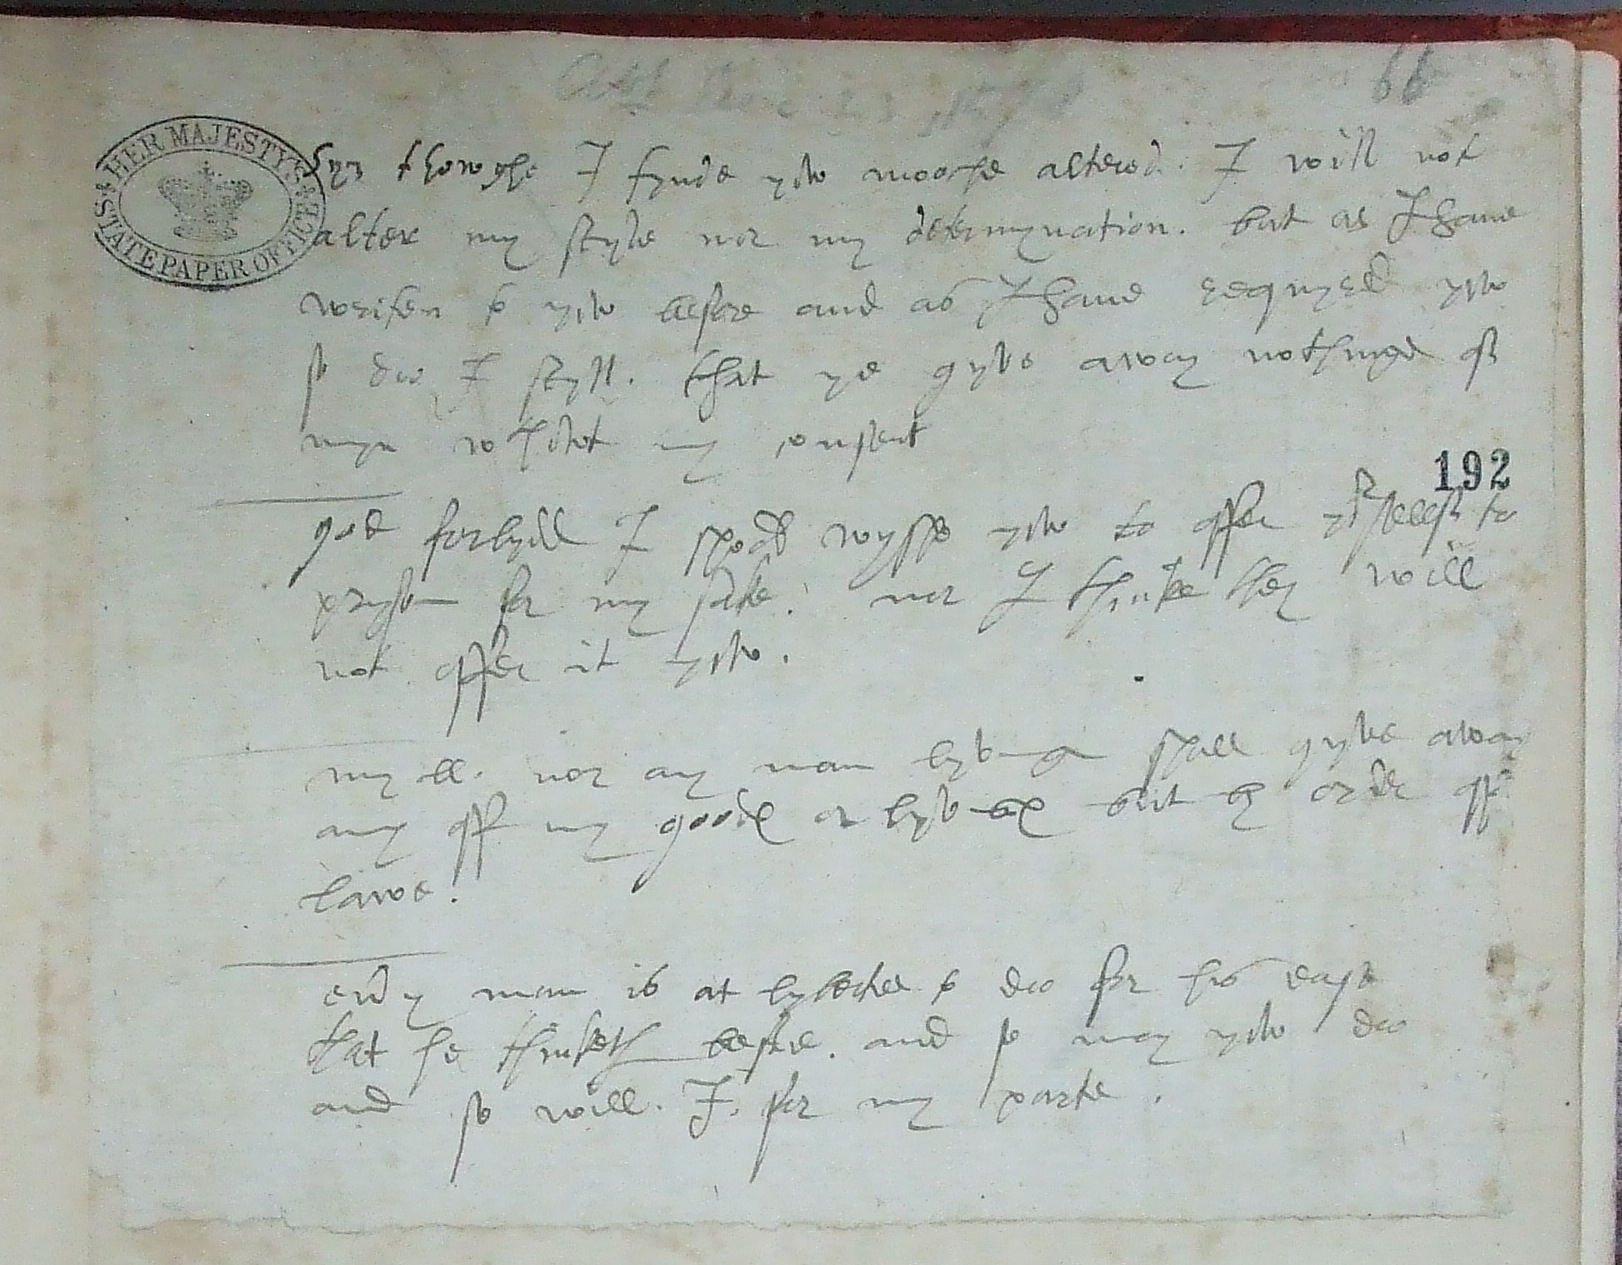 66
HER MAJESTY'S STATE PAPER OFFICE
Syr thowghe I fynde yow mooche altered. I will not
alter my style nor my determynation. but as I haue
writen to yow before and as I haue requyred yow
so doo I styll. that ye gyve away nothinge off
myn wthowt my consent
192
god forbydd I shold wysshe yow to offer yor selff to
pryson for my sake. nor I thinke they will
not offer it yow.
my ll. nor any man lyving shall gyve away
any off my goodes or lyvinges but by order off
lawe.
every man is at lybertee to doo for his ease
that he thinketh beste. and so may yow doo
and so will. I. for my parte.